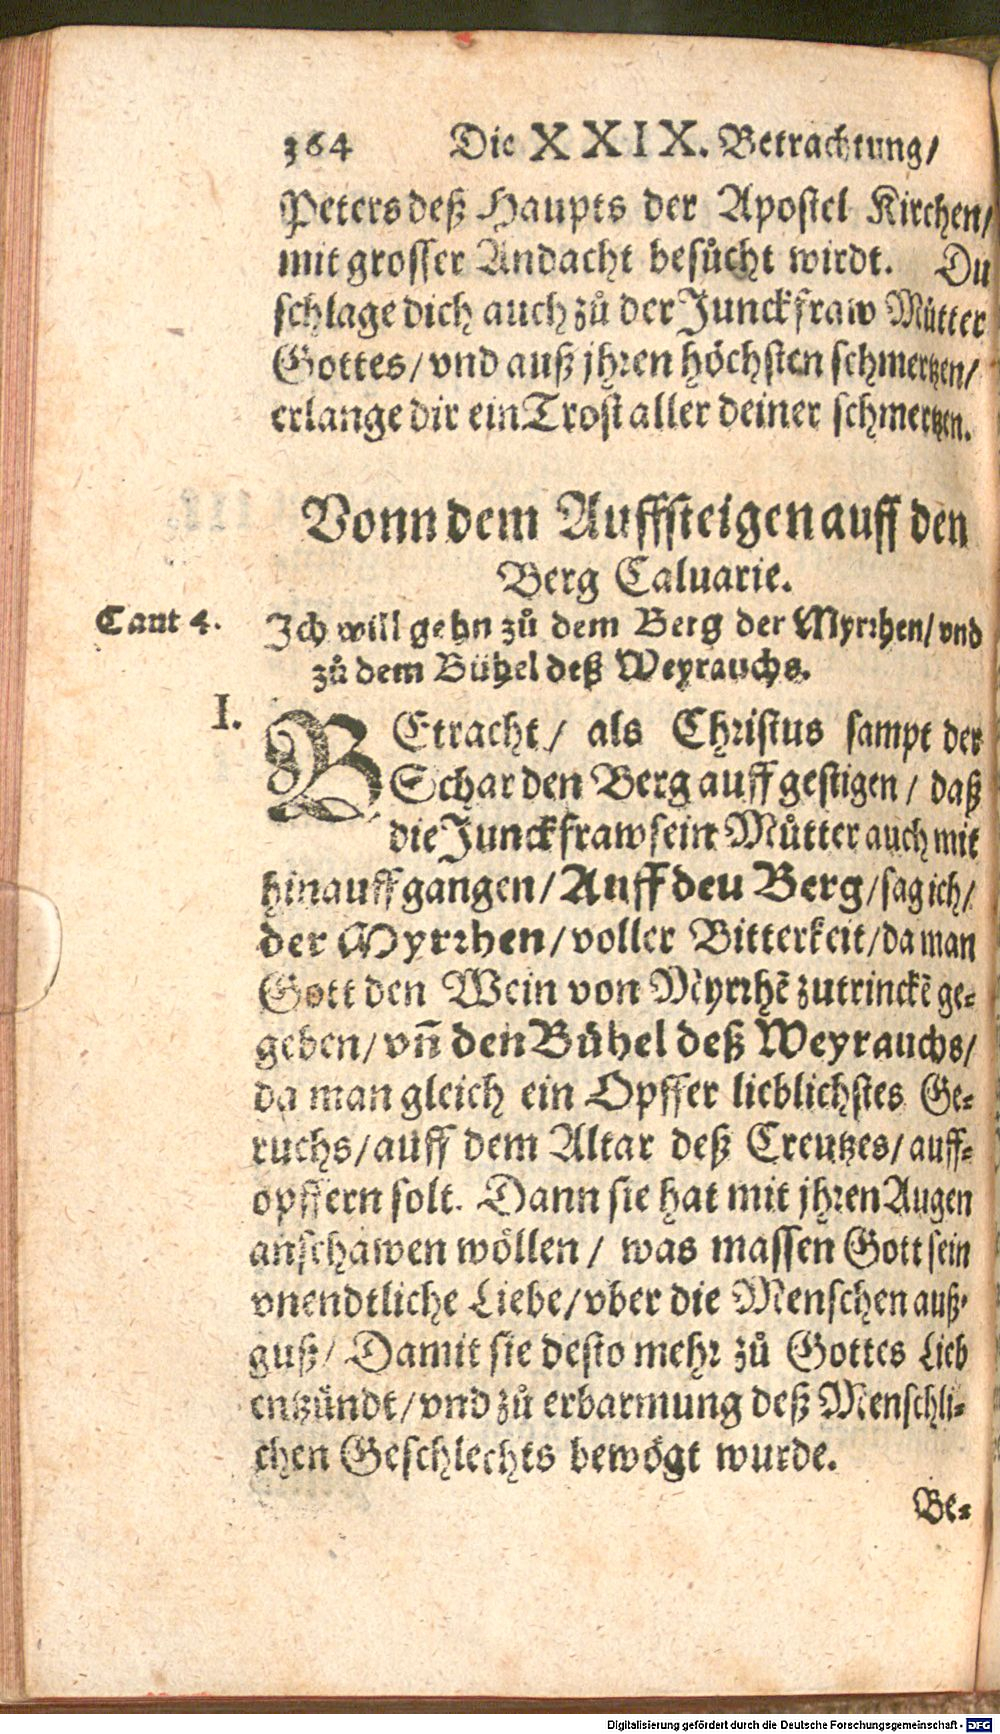 364 Die XXIX. Betrachtung/
Peters deß Haupts der Apostel Kirchen/
mit grosser Andacht besůcht wirdt. Du
schlage dich auch zů der Junckfraw Můtter
Gottes/ vnd auß jhren höchsten schmertzen/
erlange dir ein Trost aller deiner schmertzen.
Vonn dem Auffsteigen auff den
Berg Caluarie.
Cant 4. Ich will gehn zů dem Berg der Myrrhen/ vnd
zů dem Bühel deß Weyrauchs.
I. BEtracht/ als Christus sampt der
Schar den Berg auff gestigen/ daß
die Junckfraw sein Můtter auch mit
hinauff gangen/ Auff deu Berg/ sag ich/
der Myrrhen/ voller Bitterkeit/ da man
Gott den Wein von Myrrhẽ zutrinckẽ ge-
geben/ vñ den Bühel deß Weyrauchs/
da man gleich ein Opffer lieblichstes Ge-
ruchs/ auff dem Altar deß Creutzes/ auff-
opffern solt. Dann sie hat mit jhren Augen
anschawen wöllen/ was massen Gott sein
vnendtliche Liebe/ vber die Menschen auß-
guß/ Damit sie desto mehr zů Gottes Lieb
entzündt/ vnd zů erbarmung deß Menschli-
chen Geschlechts bewögt wurde.
Be-
Digitalisierung gefördert durch die Deutsche Forschungsgemeinschaft - DFG